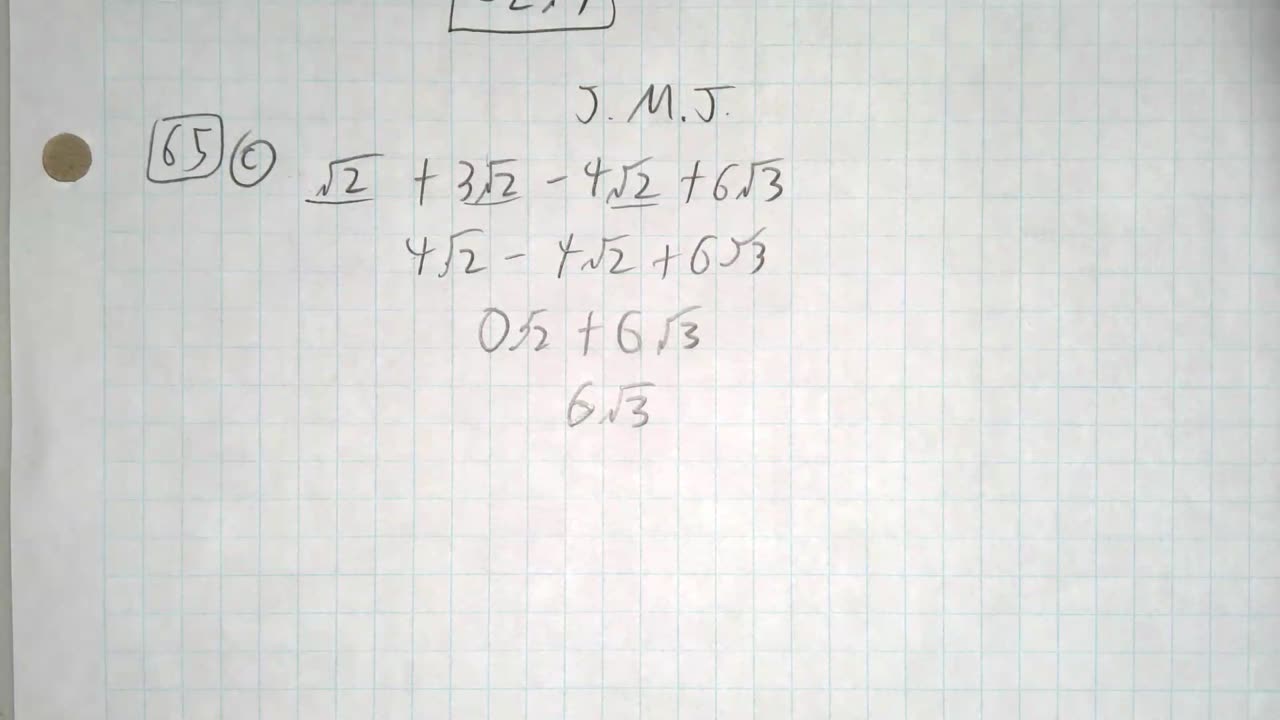 J.M.J.
65 c √2 + 3√2 - 4√2 + 6√3
4√2 - 4√2 + 6√3
0√2 + 6√3
6√3